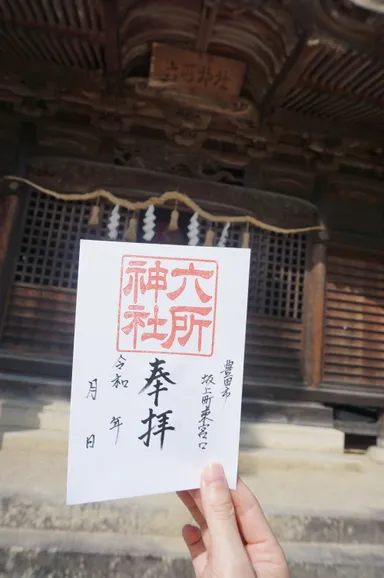 六所神社
六所
神社
豊田市
坂上町東宮口
奉拝
令和　年
月　日